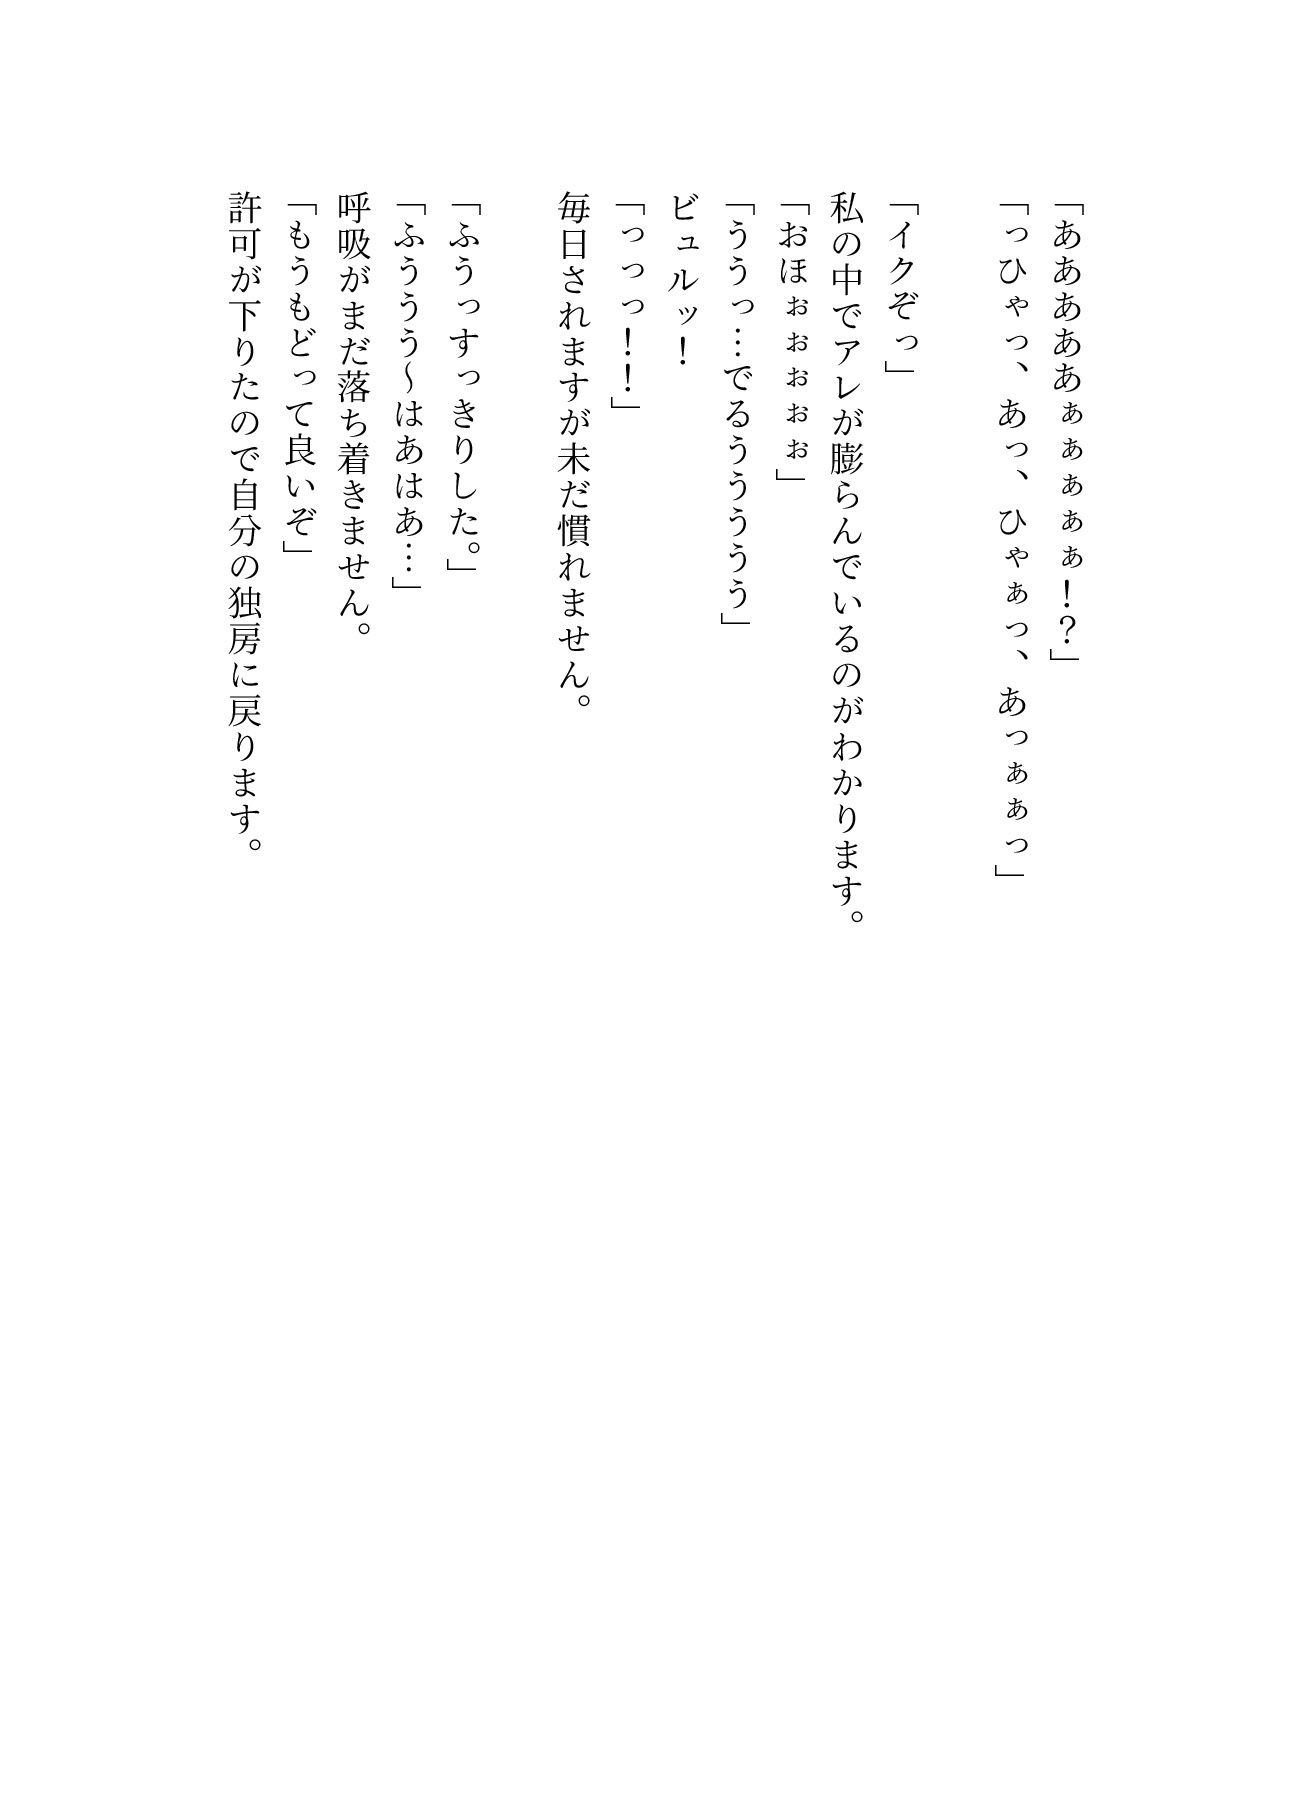 「ああああぁぁぁぁぁ！？」
「っひゃっ、あっ、ひゃぁっ、あっぁぁっ」
「イクぞっ」
私の中でアレが膨らんでいるのがわかります。
「おほぉぉぉぉぉ」
「ううっ…でるううううう」
ビュルッ！
「っっっ！！」
毎日されますが未だ慣れません。
「ふうっすっきりした。」
「ふううう～はあはあ…」
呼吸がまだ落ち着きません。
「もうもどって良いぞ」
許可が下りたので自分の独房に戻ります。